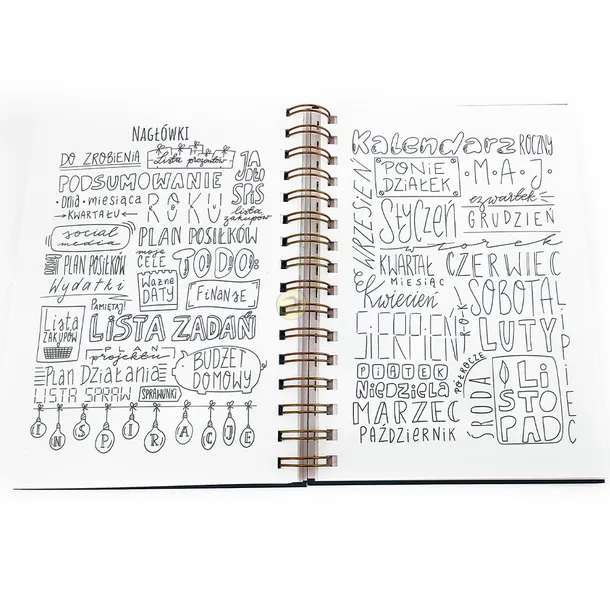 NAGŁÓWKI
DO ZROBIENIA
Lista prezentów
JADŁOSPIS
PODSUMOWANIE
• dnia • miesiąca
→ KWARTAŁU ←
ROKU
lista zakupów
social media
PLAN POSIŁKÓW
PLAN POSIŁKÓW
moje CELE
TO DO:
Wydatki
WAŻNE DATY
FINANSE
PAMIĘTAJ!
Lista ZAKUPÓW
LISTA ZADAŃ
PLAN projektu
BUDŻET DOMOWY
Plan Działania
LISTA SPRAW
SPRAWUNKI
INSPIRACJE
Kalendarz ROCZNY
WRZESIEŃ
PONIEDZIAŁEK
• M • A • J •
czwartek
Styczeń
GRUDZIEŃ
wtorek
KWARTAŁ
MIESIĄC
CZERWIEC
Kwiecień
SOBOTA
SIERPIEŃ
ROK
LUTY
LIPIEC
PIĄTEK
PÓŁROCZE
NIEDZIELA
ŚRODA
LISTOPAD
MARZEC
PAŹDZIERNIK